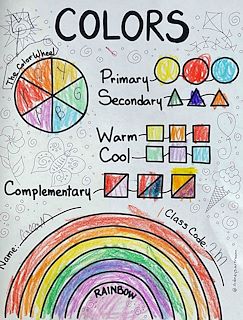 COLORS
The Color Wheel
Primary
Secondary
Warm
Cool
Complementary
Name:
Class Code:
RAINBOW